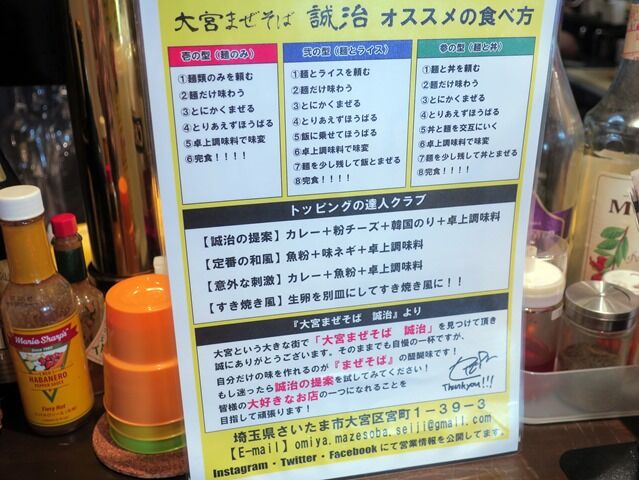 大宮まぜそば 誠治 オススメの食べ方
壱の型（麺のみ）
①麺類のみを頼む
②麺だけ味わう
③とにかくまぜる
④とりあえずほうばる
⑤卓上調味料で味変
⑥完食！！！！
弐の型（麺とライス）
①麺とライスを頼む
②麺だけ味わう
③とにかくまぜる
④とりあえずほうばる
⑤飯に乗せてほうばる
⑥卓上調味料で味変
⑦麺を少し残して飯とまぜる
⑧完食！！！！
参の型（麺と丼）
①麺と丼を頼む
②麺だけ味わう
③とにかくまぜる
④とりあえずほうばる
⑤丼と麺を交互にいく
⑥卓上調味料で味変
⑦麺を少し残して丼とまぜる
⑧完食！！！！
トッピングの達人クラブ
【誠治の提案】カレー＋粉チーズ＋韓国のり＋卓上調味料
【定番の和風】魚粉＋味ネギ＋卓上調味料
【意外な刺激】カレー＋魚粉＋卓上調味料
【すき焼き風】生卵を別皿にしてすき焼き風に！！
『大宮まぜそば 誠治』より
大宮という大きな街で「大宮まぜそば 誠治」を見つけて頂き
誠にありがとうございます。そのままでも自慢の一杯ですが、
自分だけの味を作れるのが『まぜそば』の醍醐味です！
もし迷ったら誠治の提案を試してみてください！
皆様の大好きなお店の一つになれることを
目指して頑張ります！
Thankyou!!!
埼玉県さいたま市大宮区宮町１－３９－３
【E-mail】omiya.mazesoba.seiji@gmail.com
Instagram・Twitter・Facebookにて営業情報を公開してます。
Marie Sharp's
HABANERO
PEPPER SAUCE
Fiery Hot
M